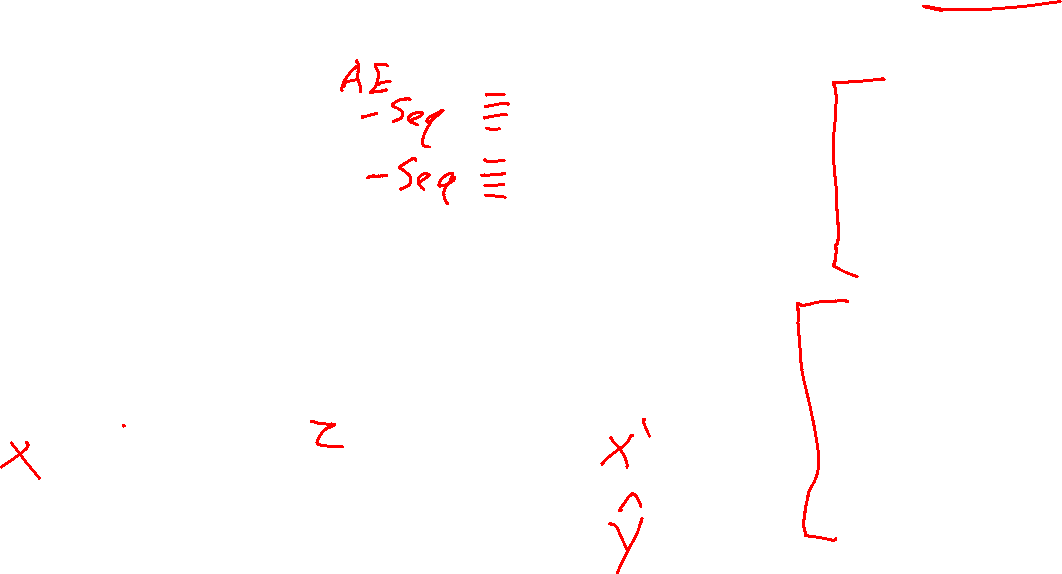 AE
- Seq
- Seq
x z x'
ŷ